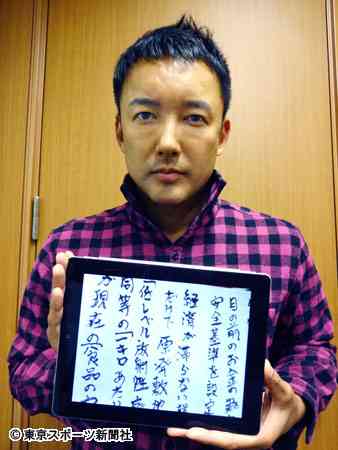 目の前のお金の
安全基準を設定
経済が滞らない様
だけで 原発敷地
「低レベル放射性廃
同等の一キロあた
が現在の食品の
©東京スポーツ新聞社